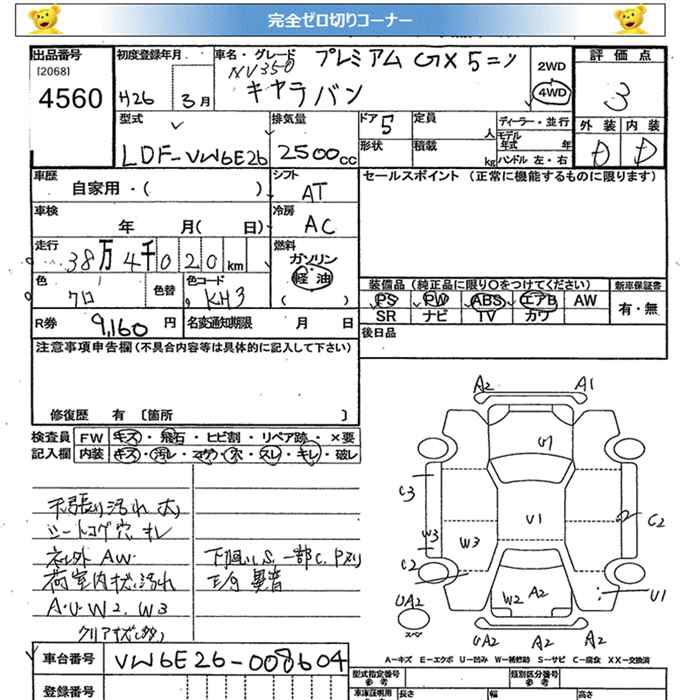 完全ゼロ切りコーナー
出品番号 初度登録年月 車名・グレード プレミアム GX 5ニン 2WD 評価点
[2068] NV350 4WD
4560 H26 3月 キャラバン 3
型式 排気量 ドア 5 定員 人 ディーラー・並行 外装 内装
モデル年式 年
LDF-VW6E26 2500cc 形状 積載 kg ハンドル 左・右 D D
車歴 自家用・( ) シフト AT セールスポイント (正常に機能するものに限ります)
車検 年 月( 日) 冷房 AC
走行 38万4千020km 燃料 ガソリン
軽油
( )
色 クロ 色替 色コード KH3
装備品 (純正品に限り○をつけてください) 新車保証書
PS PW ABS エアB AW 有・無
SR ナビ TV カワ
R券 9,160円 名変通知期限 月 日 後日品
注意事項申告欄 (不具合内容等は具体的に記入して下さい)
修復歴 有 [箇所 ]
検査員 FW キズ・飛石・ヒビ割・リペア跡・×要
記入欄 内装 キズ・汚レ・コゲ・穴・スレ・キレ・破レ
天張り汚れ大
シートコゲ穴キレ
社外AW 下廻りS.一部C.Pスリ
荷室内状汚れ 異音
A・U・W2、W3
クリアキズ(多)
A2 A1
G1
C3
U1 2 C2
W3 W3
C2
W2 A2 U1
UA2
スペア
UA2 A2 A2
A-キズ E-エクボ U-凹み W-補修跡 S-サビ C-腐食 XX-交換済
車台番号 VW6E26-008604
型式指定番号 参考 類別区分番号 参考
登録番号 車庫証明用 参考 長さ 幅 高さ